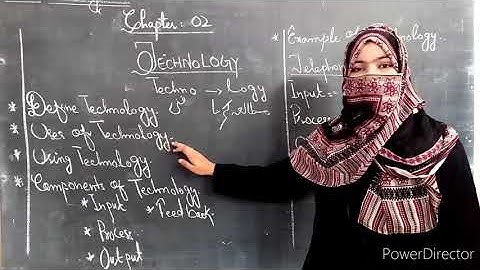 Chapter: 02
TECHNOLOGY
Techno → Logy
فن مطالعہ
* Define Technology.
* Uses of Technology.
* Using Technology.
* Components of Technology.
* Input * Feedback.
* Process.
* Output
* Example of Technology..
Telephon
Input:-
Process
PowerDirector